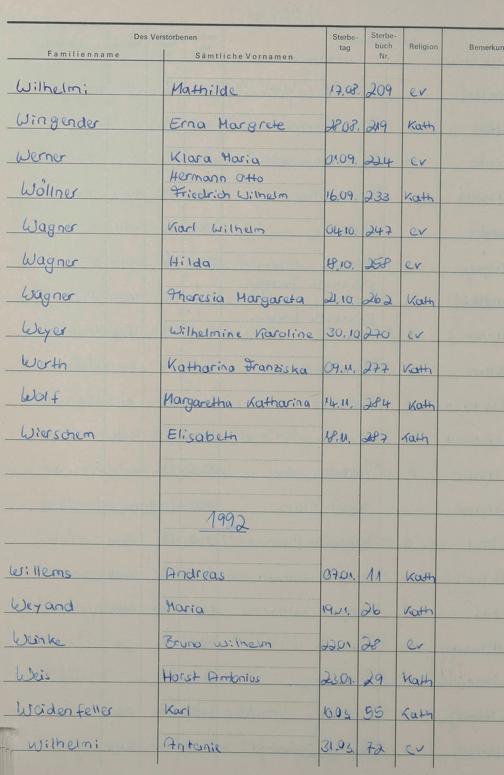 Des Verstorbenen Sterbe- Sterbe-
Familienname Sämtliche Vornamen tag buch Nr. Religion Bemerkun
Wilhelmi Mathilde 17.08. 209 ev
Wingender Erna Margrete 28.08. 219 Kath
Werner Klara Maria 01.09. 224 ev
Hermann Otto
Wöllner Friedrich Wilhelm 16.09. 233 Kath
Wagner Karl Wilhelm 04.10. 247 ev
Wagner Hilda 18.10. 258 ev
Wagner Theresia Margareta 21.10. 262 Kath
Weyer Wilhelmine Karoline 30.10 270 ev
Werth Katharina Franziska 09.11. 277 Kath
Wolf Margaretha Katharina 14.11. 284 Kath
Wierschem Elisabeth 18.11. 287 Kath
1992
Willems Andreas 07.01. 11 Kath
Weyand Maria 19.01. 26 Kath
Weinke Bruno Wilhelm 22.01 28 ev
Weis Horst Antonius 23.01. 29 Kath
Weidenfeller Karl 55 Kath
Wilhelmi Antonie 72 ev